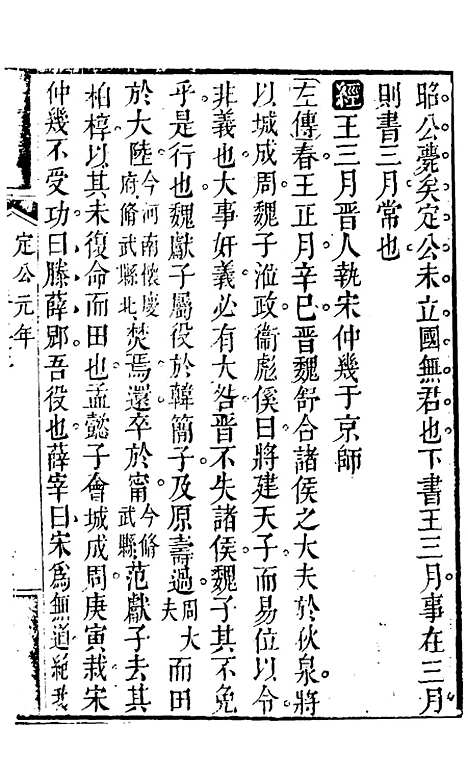 昭公薨矣定公未立國無君也下書王三月事在三月
則書三月常也
經王三月晉人執宋仲幾于京師
左傳春王正月辛巳晉魏舒合諸侯之大夫於狄泉將
以城成周魏子涖政衞彪傒曰將建天子而易位以令
非義也大事奸義必有大咎晉不失諸侯魏子其不免
乎是行也魏獻子屬役於韓簡子及原壽過周大夫而田
於大陸今河南懷慶府脩武縣北焚焉還卒於甯今脩武縣范獻子去其
柏椁以其未復命而田也孟懿子會城成周庚寅栽宋
仲幾不受功曰滕薛郳吾役也薛宰曰宋爲無道絶我
定公元年